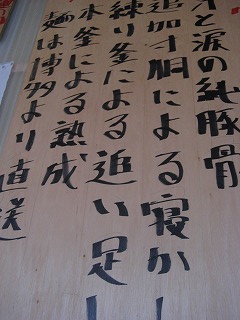 と涙の純豚骨
追加寸胴による寝かし
練り釜による追い足し
水釜による熟成
麺は博多より直送